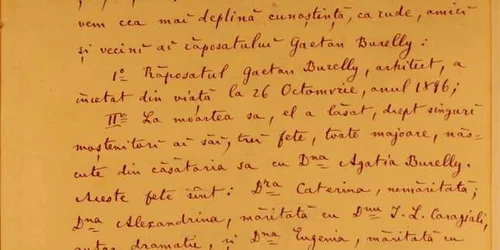 vem cea mai deplină cunoștință, ca rude, amici
și vecini ai răposatului Gaetan Burelly:
Iº Răposatul Gaetan Burelly, arhitect, a
încetat din viață la 26 Octomvrie, anul 1896;
IIº La moartea sa, el a lăsat, drept singuri
moștenitori ai săi, trei fete, toate majore, năs-
cute din căsătoria sa cu Dna Agatia Burelly.
Aceste fete sînt: Dra Caterina, nemăritată;
Dna Alexandrina, măritată cu Dnu I. L. Caragiali,
autor dramatic, și Dna Eugenia, măritată cu